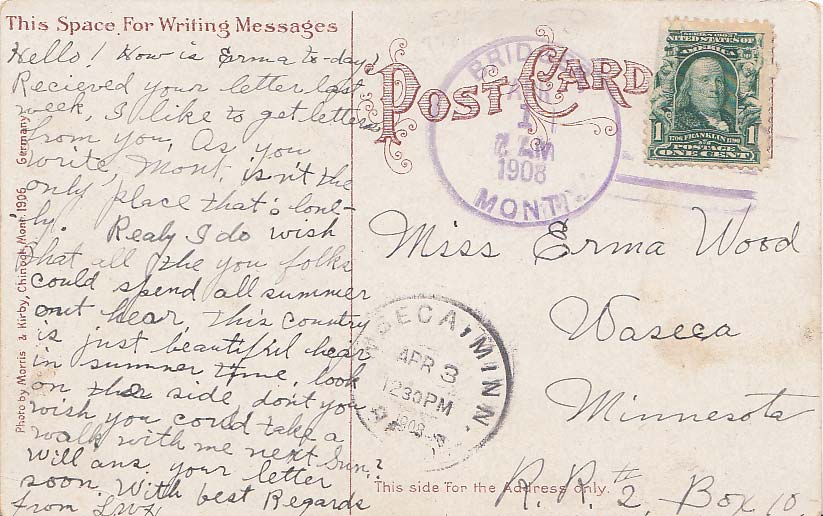 This Space For Writing Messages
Hello! How is Erma to-day?
Recieved your letter last
week, I like to get letters
from you, As you
write, Mont, isn't the
only place that's lone-
ly. Realy I do wish
that all the you folks
could spend all summer
out hear, this country
is just beautiful hear
in summer time, look
on the side don't you
wish you could take a
walk with me next Sun.?
Will ans. your letter
soon. With best Regards
from
Photo by Morris & Kirby, Chinook, Mont. 1906 Germany
POST CARD
BRIDG
APR
1
AM
1908
MONT.
SERIES 1902
UNITED STATES OF
AMERICA
1706 FRANKLIN 1790
POSTAGE
1 ONE CENT 1
Miss Erma Wood
Waseca
Minnesota
R.R. 2, Box 10.
WASECA, MINN.
APR 3
1230PM
1908
This side for the Address only.